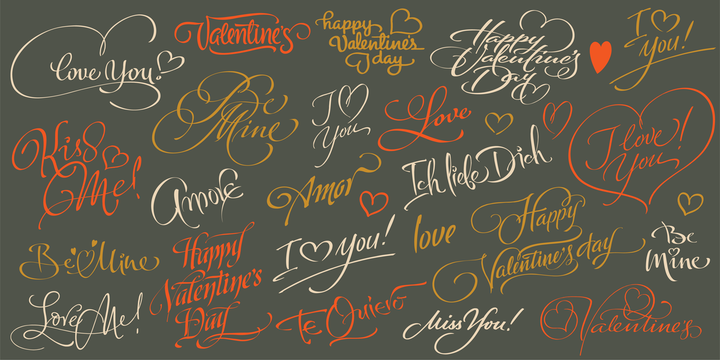 love You!
Valentine's
happy
Valentine's
day
Happy
Valentine's
Day
I
You!
Be
Mine
I
You
Love
I love!
You
Kiss
Me!
Amore
Amor
Ich liebe Dich
Be Mine
Happy
Valentine's
Day
I You!
love
Happy
Valentine's day
Be
Mine
Love Me!
Te Quiero
Miss You!
Valentine's